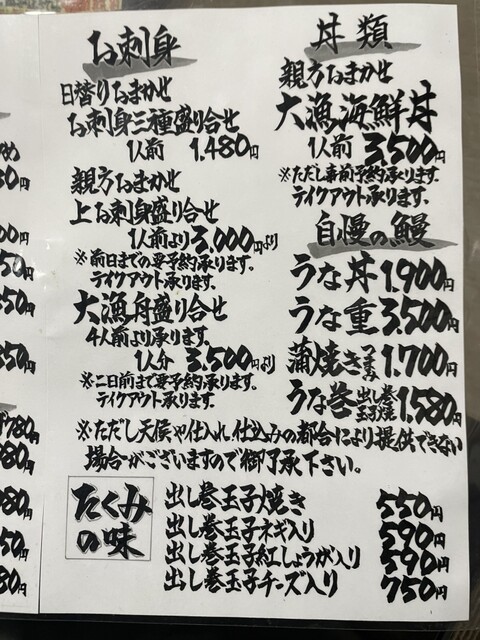 お刺身
日替りおまかせ
お刺身三種盛り合せ
1人前 1.480円
親方おまかせ
上お刺身盛り合せ
1人前より3,000円より
※前日までの要予約承ります。
テイクアウト承ります。
大漁舟盛り合せ
4人前より承ります。
1人分 3,500円より
※二日前まで要予約承ります。
テイクアウト承ります。
丼類
親方おまかせ
大漁海鮮丼
1人前 3,500円
※ただし事前予約承ります。
テイクアウト承ります。
自慢の鰻
うな丼 1,900円
うな重 3,500円
蒲焼き つまみ 1,700円
うな巻 出し巻玉子焼 1,580円
※ただし天候や仕入れ、仕込みの都合により提供できない
場合がございますので御了承下さい。
たくみの味
出し巻玉子焼き 550円
出し巻玉子ネギ入り 590円
出し巻玉子紅しょうが入り 590円
出し巻玉子チーズ入り 750円